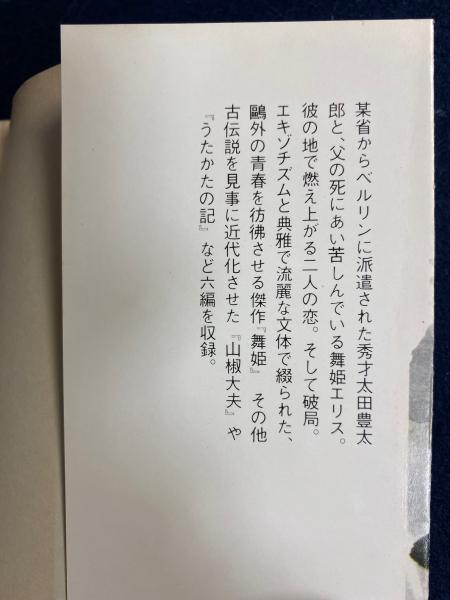 某省からベルリンに派遣された秀才太田豊太
郎と、父の死にあい苦しんでいる舞姫エリス。
彼の地で燃え上がる二人の恋。そして破局。
エキゾチズムと典雅で流麗な文体で綴られた、
鷗外の青春を彷彿させる傑作『舞姫』その他
古伝説を見事に近代化させた『山椒大夫』や
『うたかたの記』など六編を収録。